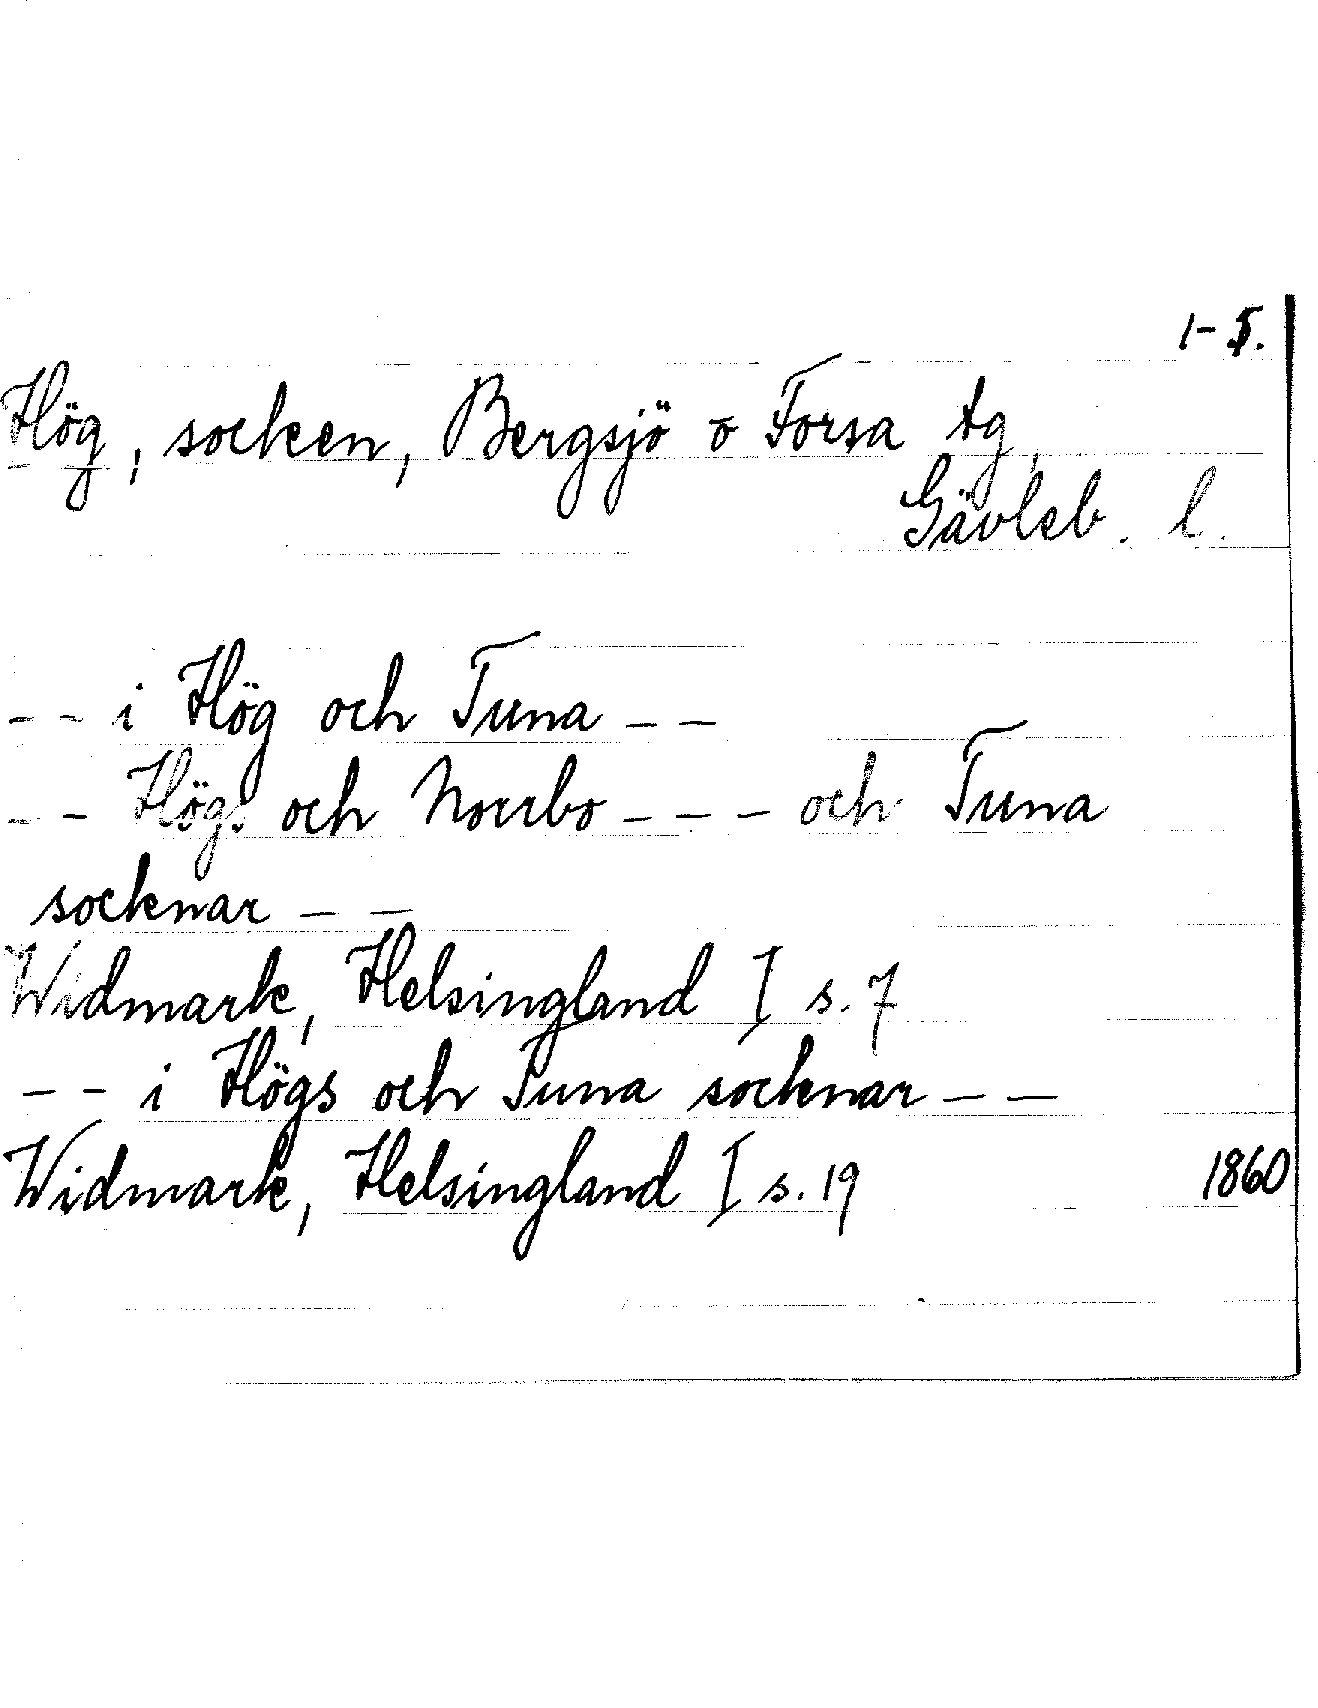 1-5.
Hög, socken, Bergsjö o Forsa tg,
Gävleb. l.
-- i Hög och Tuna --
-- Högs och Norrbo --- och Tuna
socknar --
Widmark, Helsingland I s. 7
-- i Högs och Tuna socknar --
Widmark, Helsingland I s. 19 1860